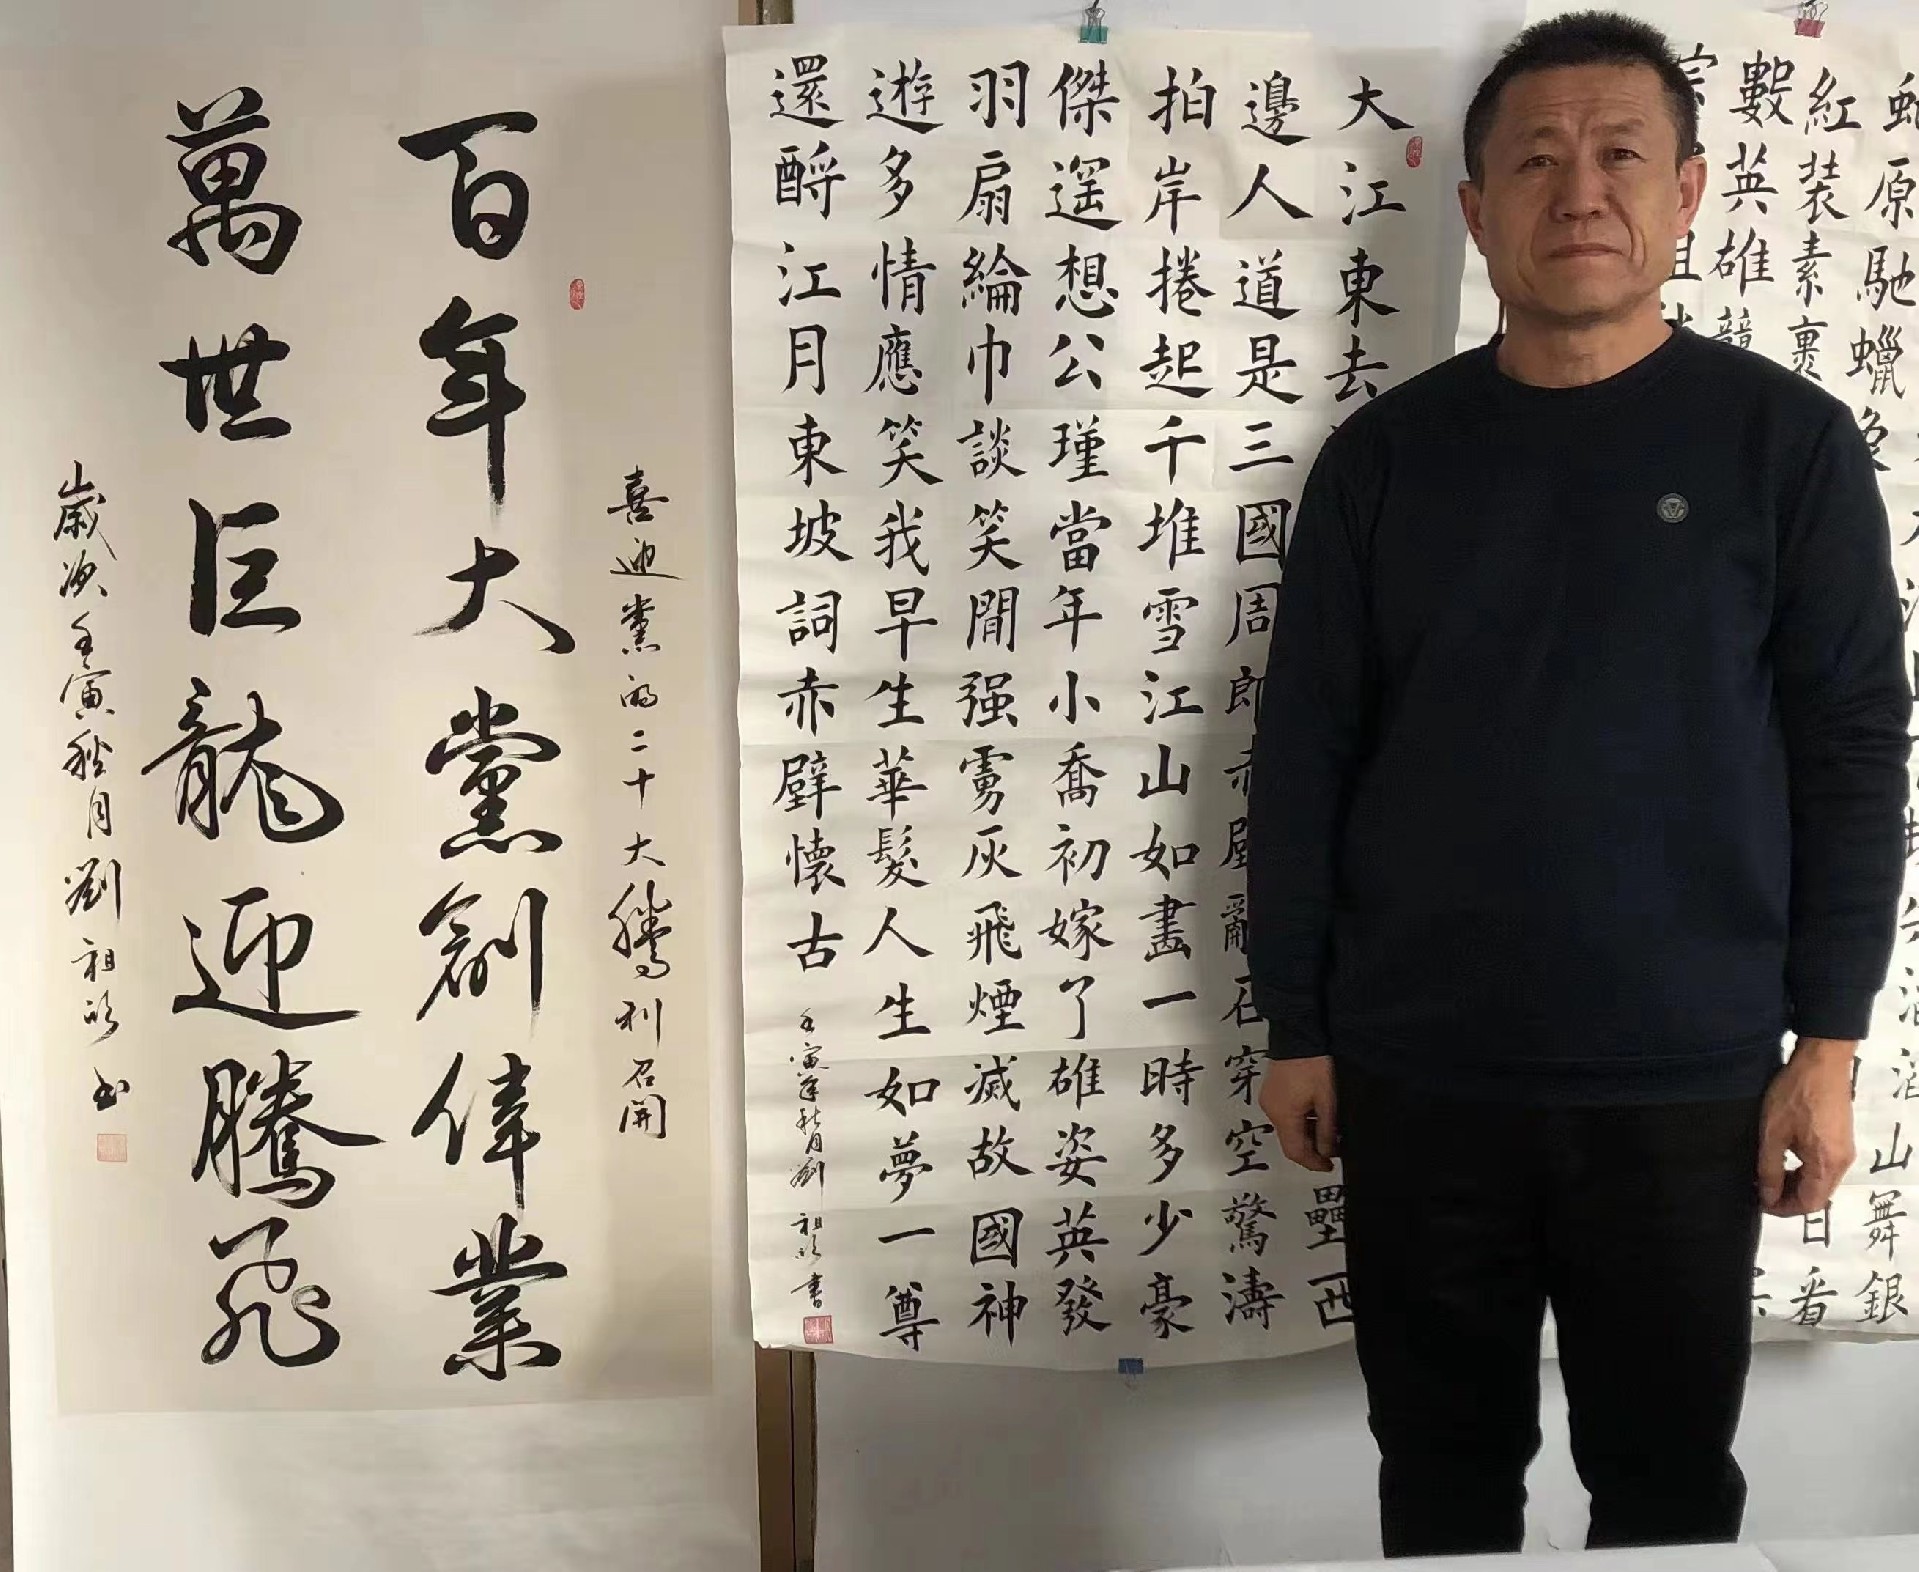 喜迎黨的二十大勝利召開
百年大黨創偉業
萬世巨龍迎騰飛
歲次壬寅秋月劉祖欣书
大江東去壘西
邊人道是三國周郎赤壁亂石穿空驚濤
拍岸捲起千堆雪江山如畫一時多少豪
傑遥想公瑾當年小喬初嫁了雄姿英發
羽扇綸巾談笑間强虜灰飛煙滅故國神
遊多情應笑我早生華髮人生如夢一尊
還酹江月東坡詞赤壁懷古
壬寅年秋月劉祖欣書
滔山舞銀
原馳蠟象日看
紅装素裹
數英雄競